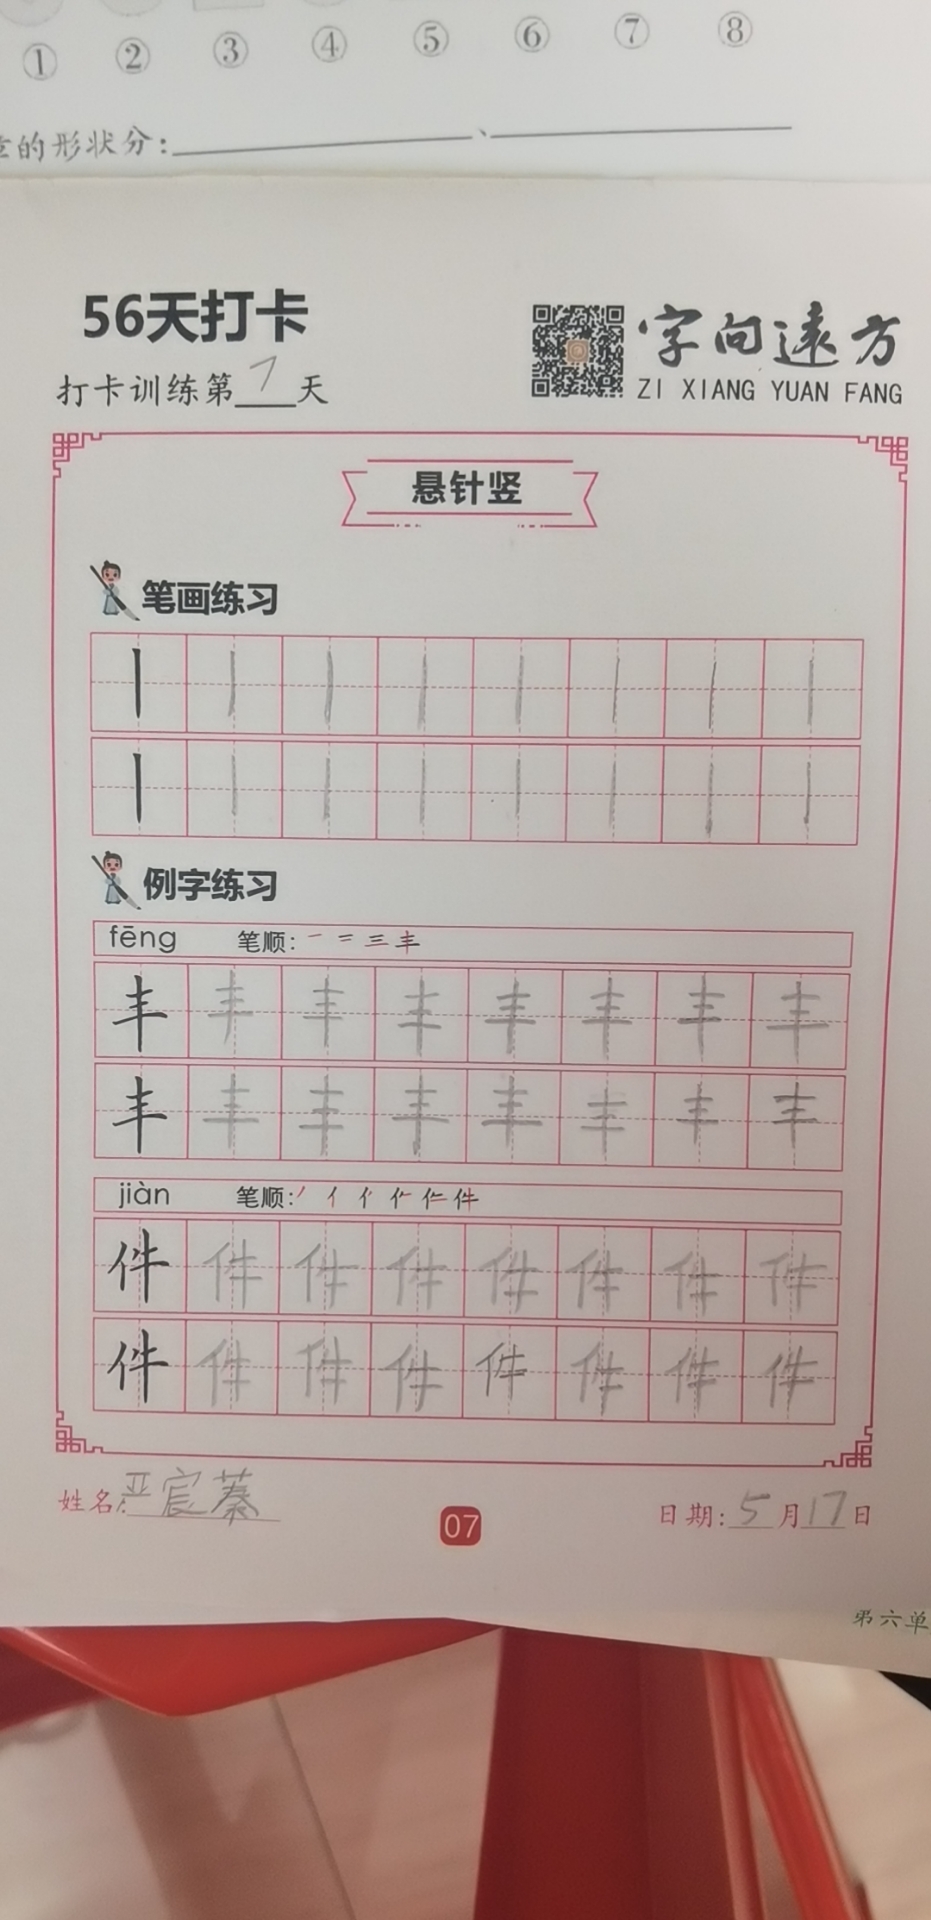 ① ② ③ ④ ⑤ ⑥ ⑦ ⑧
的形状分：、
56天打卡
打卡训练第7天
字向远方
ZI XIANG YUAN FANG
悬针竖
笔画练习
丨 丨 丨 丨 丨 丨 丨 丨
丨 丨 丨 丨 丨 丨 丨 丨
例字练习
fēng 笔顺：
丰 丰 丰 丰 丰 丰 丰 丰
丰 丰 丰 丰 丰 丰 丰 丰
jiàn 笔顺：
件 件 件 件 件 件 件 件
件 件 件 件 件 件 件 件
姓名：严宸蓁
07
日期：5月17日
第六单